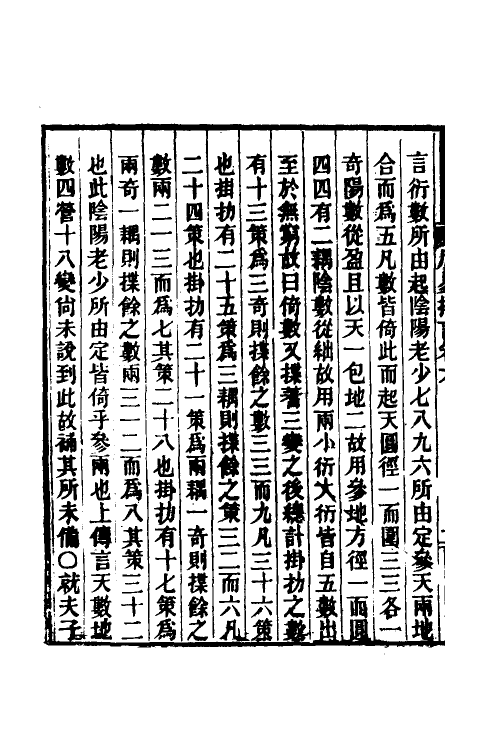 言衍數所由起陰陽老少七八九六所由定參天兩地
合而爲五凡數皆倚此而起天圓徑一而圍三三各一
奇陽數從盈且以天一包地二故用參地方徑一而圍
四四有二耦陰數從絀故用兩小衍大衍皆自五數出
至於無窮故曰倚數又揲蓍三變之後總計掛扐之數
有十三策爲三奇則揲餘之數三三而九凡三十六策
也掛扐有二十五策爲三耦則揲餘之策三二而六凡
二十四策也掛扐有二十一策爲兩耦一奇則揲餘之
數兩二一三而爲七其策二十八也掛扐有十七策爲
兩奇一耦則揲餘之數兩三一二而爲八其策三十二
也此陰陽老少所由定皆倚乎參兩也上傳言天數地
數四營十八變尙未說到此故補其所未備〇就夫子